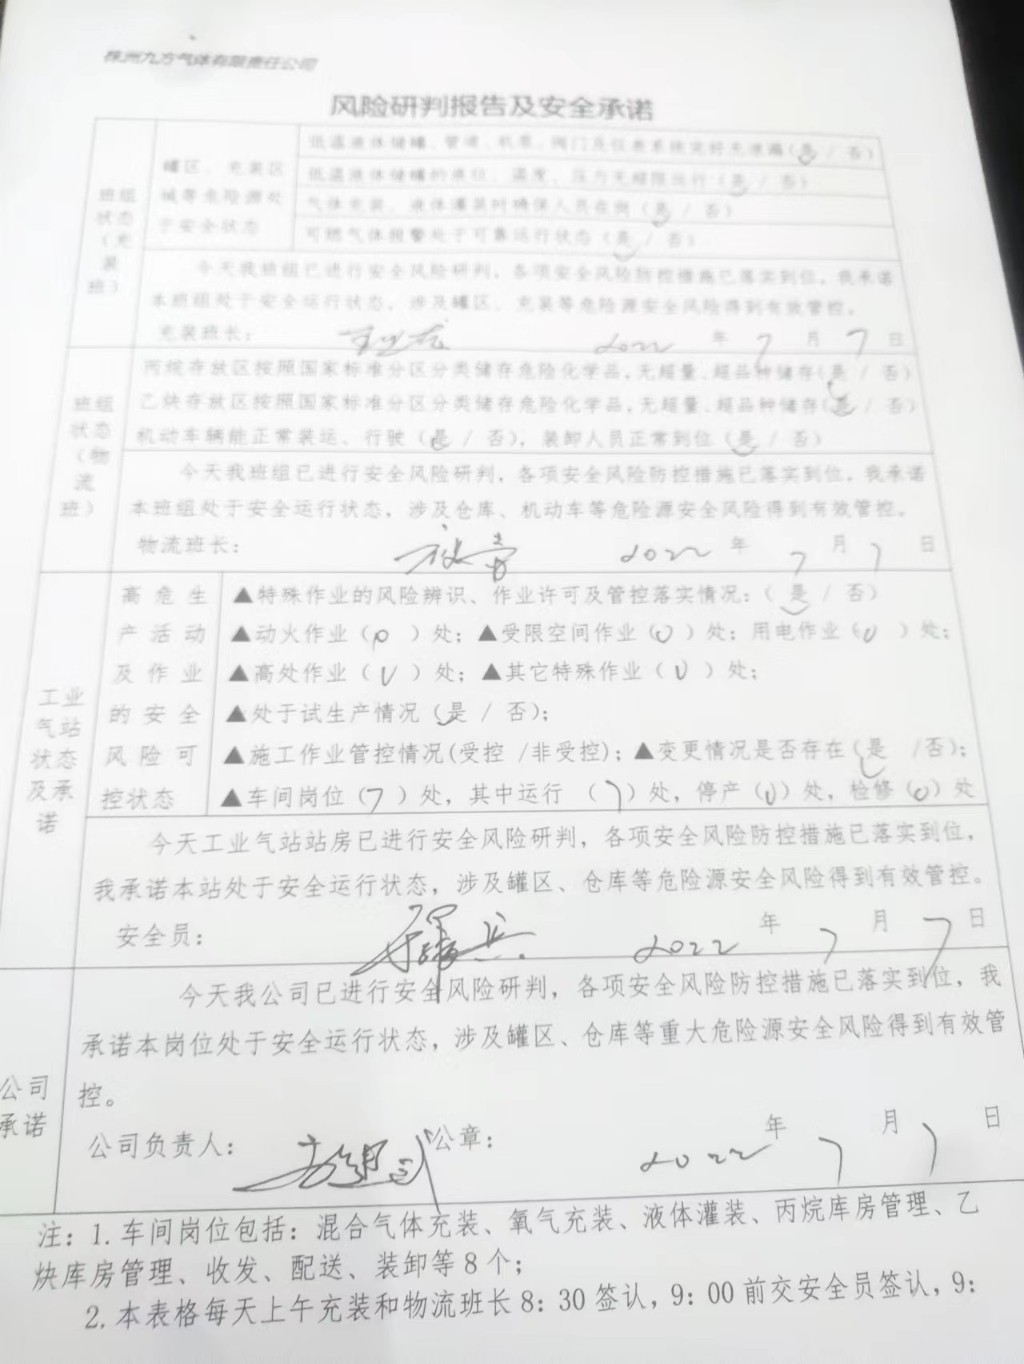 株洲九方气体有限责任公司
风险研判报告及安全承诺
班组状态（充装班）
罐区、充装区域等危险源处于安全状态
低温液体储罐、管道、机泵、阀门及仪表系统完好无泄漏（是 / 否）
低温液体储罐的液位、温度、压力无超限运行（是 / 否）
气体充装、液体灌装时确保人员在岗（是 / 否）
可燃气体报警处于可靠运行状态（是 / 否）
今天我班组已进行安全风险研判，各项安全风险防控措施已落实到位，我承诺
本班组处于安全运行状态，涉及罐区、充装等危险源安全风险得到有效管控。
充装班长： 2022 年 7 月 7 日
班组状态（物流班）
丙烷存放区按照国家标准分区分类储存危险化学品，无超量、超品种储存（是 / 否）
乙炔存放区按照国家标准分区分类储存危险化学品，无超量、超品种储存（是 / 否）
机动车辆能正常装运、行驶（是 / 否），装卸人员正常到位（是 / 否）
今天我班组已进行安全风险研判，各项安全风险防控措施已落实到位，我承诺
本班组处于安全运行状态，涉及仓库、机动车等危险源安全风险得到有效管控。
物流班长： 2022 年 7 月 7 日
工业气站状态及承诺
高危生产活动及作业的安全风险可控状态
▲特殊作业的风险辨识、作业许可及管控落实情况：（ 是 / 否）
▲动火作业（0 ）处；▲受限空间作业（0 ）处；用电作业（0 ）处；
▲高处作业（0 ）处；▲其它特殊作业（0 ）处；
▲处于试生产情况（是 / 否）；
▲施工作业管控情况(受控 /非受控)；▲变更情况是否存在（是 /否）；
▲车间岗位（7 ）处，其中运行 （7）处，停产（0）处，检修（0）处
今天工业气站站房已进行安全风险研判，各项安全风险防控措施已落实到位，
我承诺本站处于安全运行状态，涉及罐区、仓库等危险源安全风险得到有效管控。
安全员： 2022 年 7 月 7 日
公司承诺
今天我公司已进行安全风险研判，各项安全风险防控措施已落实到位，我
承诺本岗位处于安全运行状态，涉及罐区、仓库等重大危险源安全风险得到有效管
控。
公司负责人： 公章： 2022 年 7 月 7 日
注：1.车间岗位包括：混合气体充装、氧气充装、液体灌装、丙烷库房管理、乙
炔库房管理、收发、配送、装卸等8个；
2.本表格每天上午充装和物流班长8：30签认，9：00前交安全员签认，9：